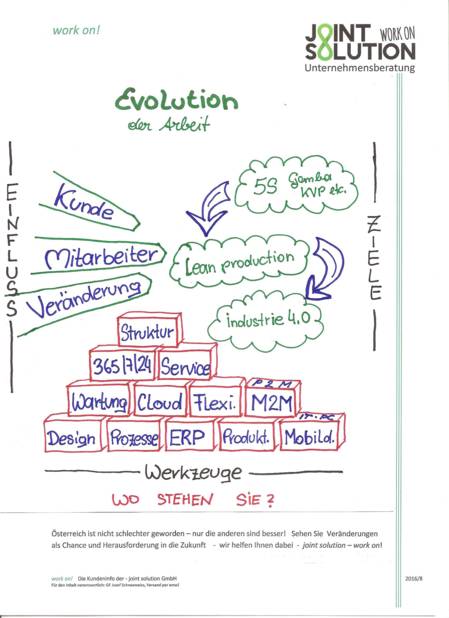 work on!
JOINT WORK ON
SOLUTION
Unternehmensberatung
Evolution
der Arbeit
EINFLUSS
Kunde
Mitarbeiter
Veränderung
5S Gemba
KVP etc.
Lean production
industrie 4.0
ZIELE
Struktur
365/7/24 Service
P2M
Wartung Cloud Flexi. M2M
IT-PC
Design Prozesse ERP Produkt. Mobild.
Werkzeuge
WO STEHEN SIE?
Österreich ist nicht schlechter geworden – nur die anderen sind besser! Sehen Sie Veränderungen
als Chance und Herausforderung in die Zukunft - wir helfen Ihnen dabei - joint solution – work on!
work on! Die Kundeninfo der - joint solution GmbH
Für den Inhalt verantwortlich: GF Josef Schneeweiss, Versand per email
2016/8